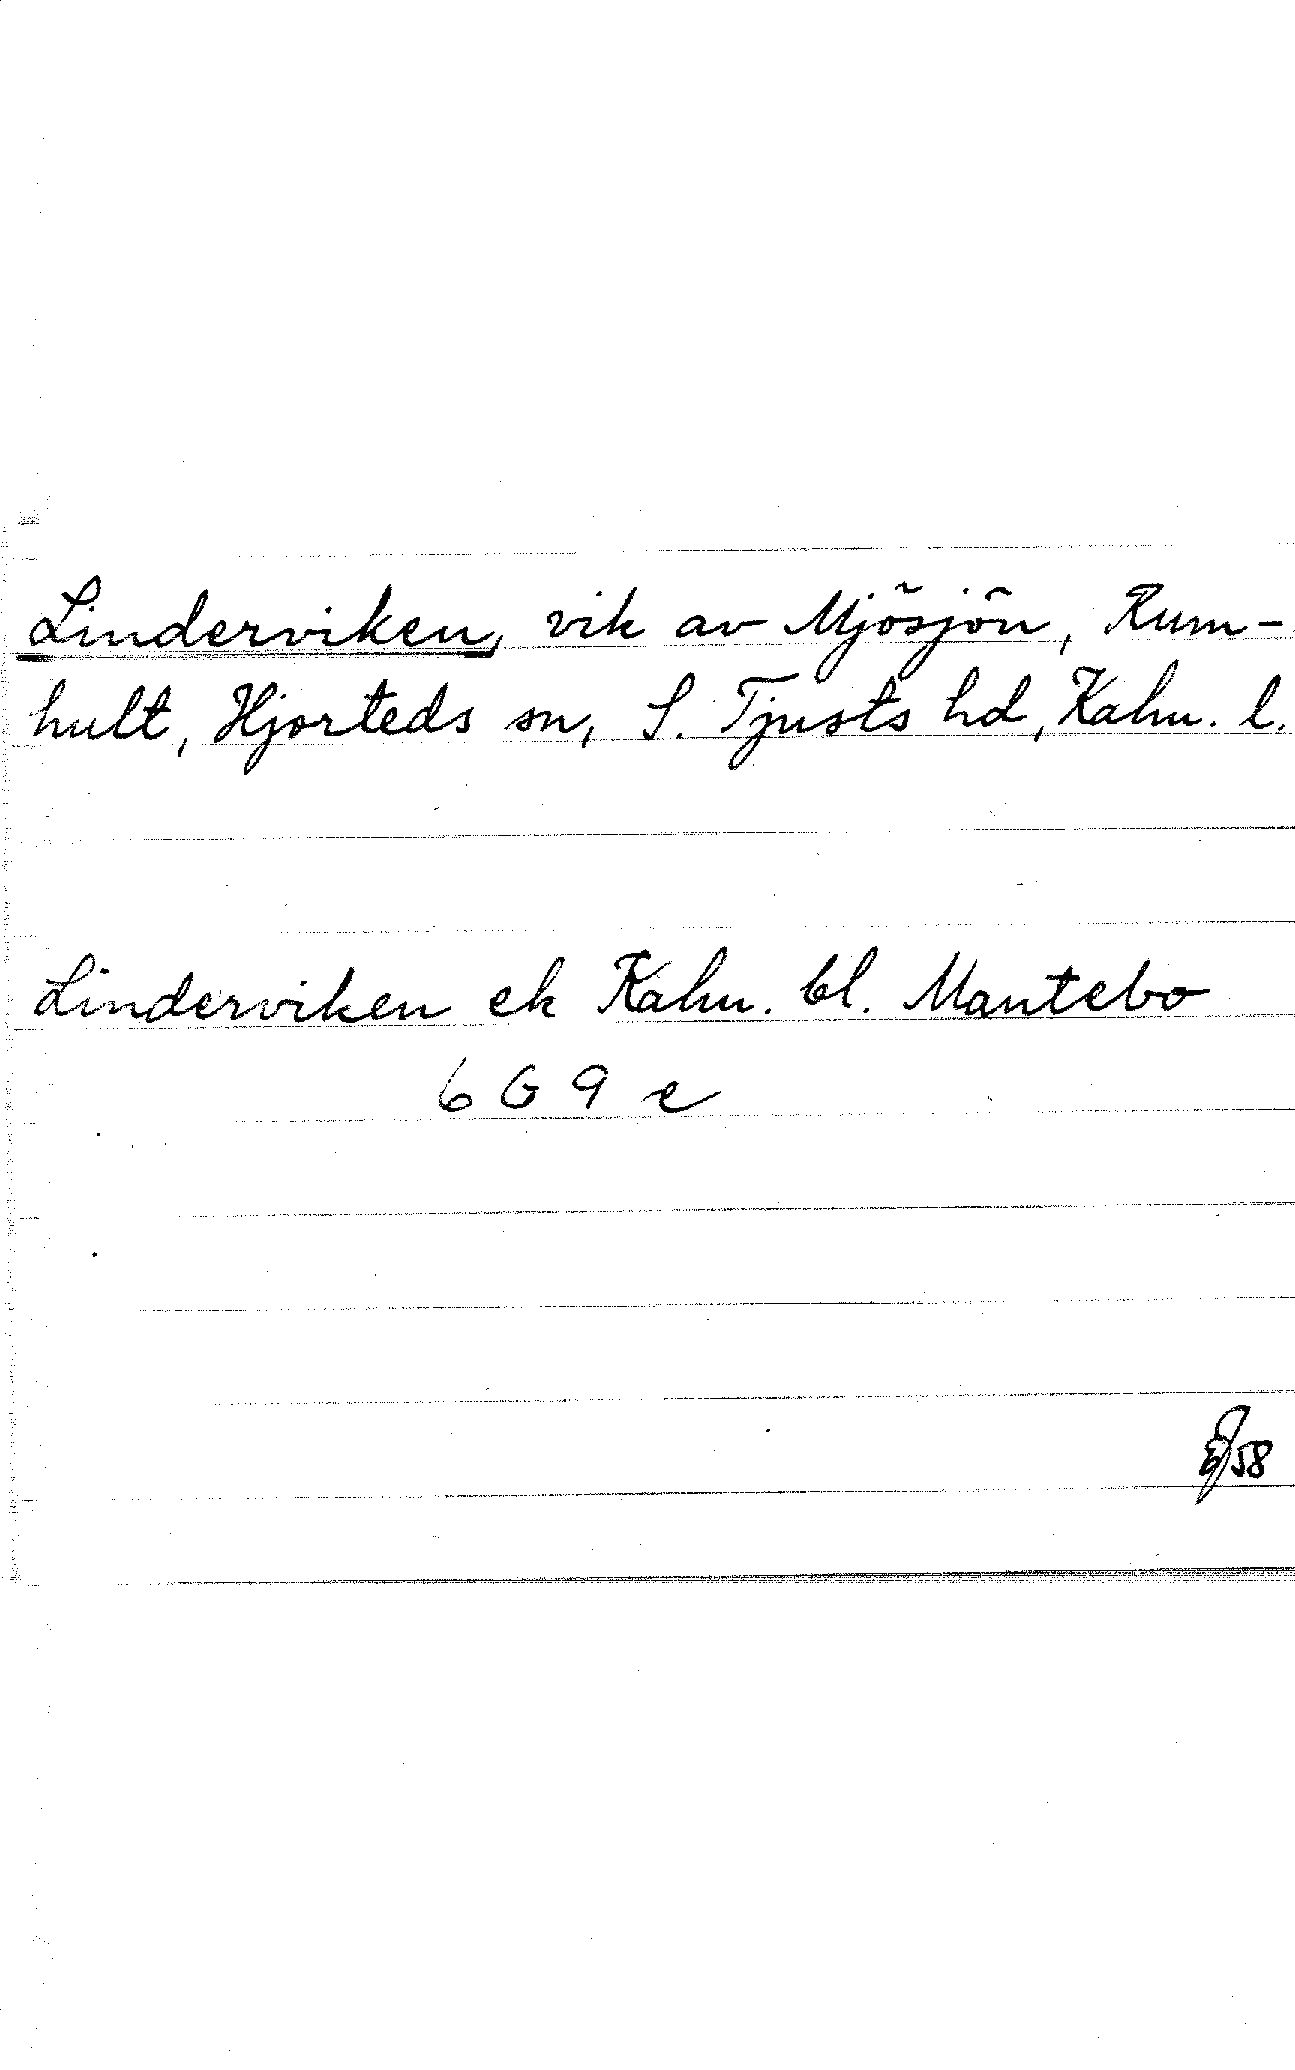 Linderviken, vik av Mjösjön, Rum-
hult, Hjorteds sn, S. Tjusts hd, Kalm. l.
Linderviken ek Kalm. bl. Mantebo
6 G 9 e
/58